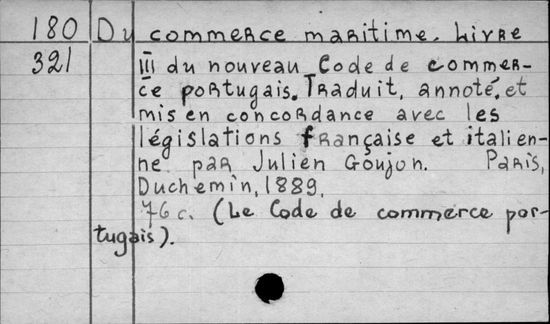 180 Du commerce maritime. Livre
321 III du nouveau Code de commer-
ce portugais. Traduit, annoté, et
mis en concordance avec les
législations française et italien-
ne par Julien Goujon. Paris,
Duchemin, 1889.
76 c. (Le Code de commerce por-
tugais).